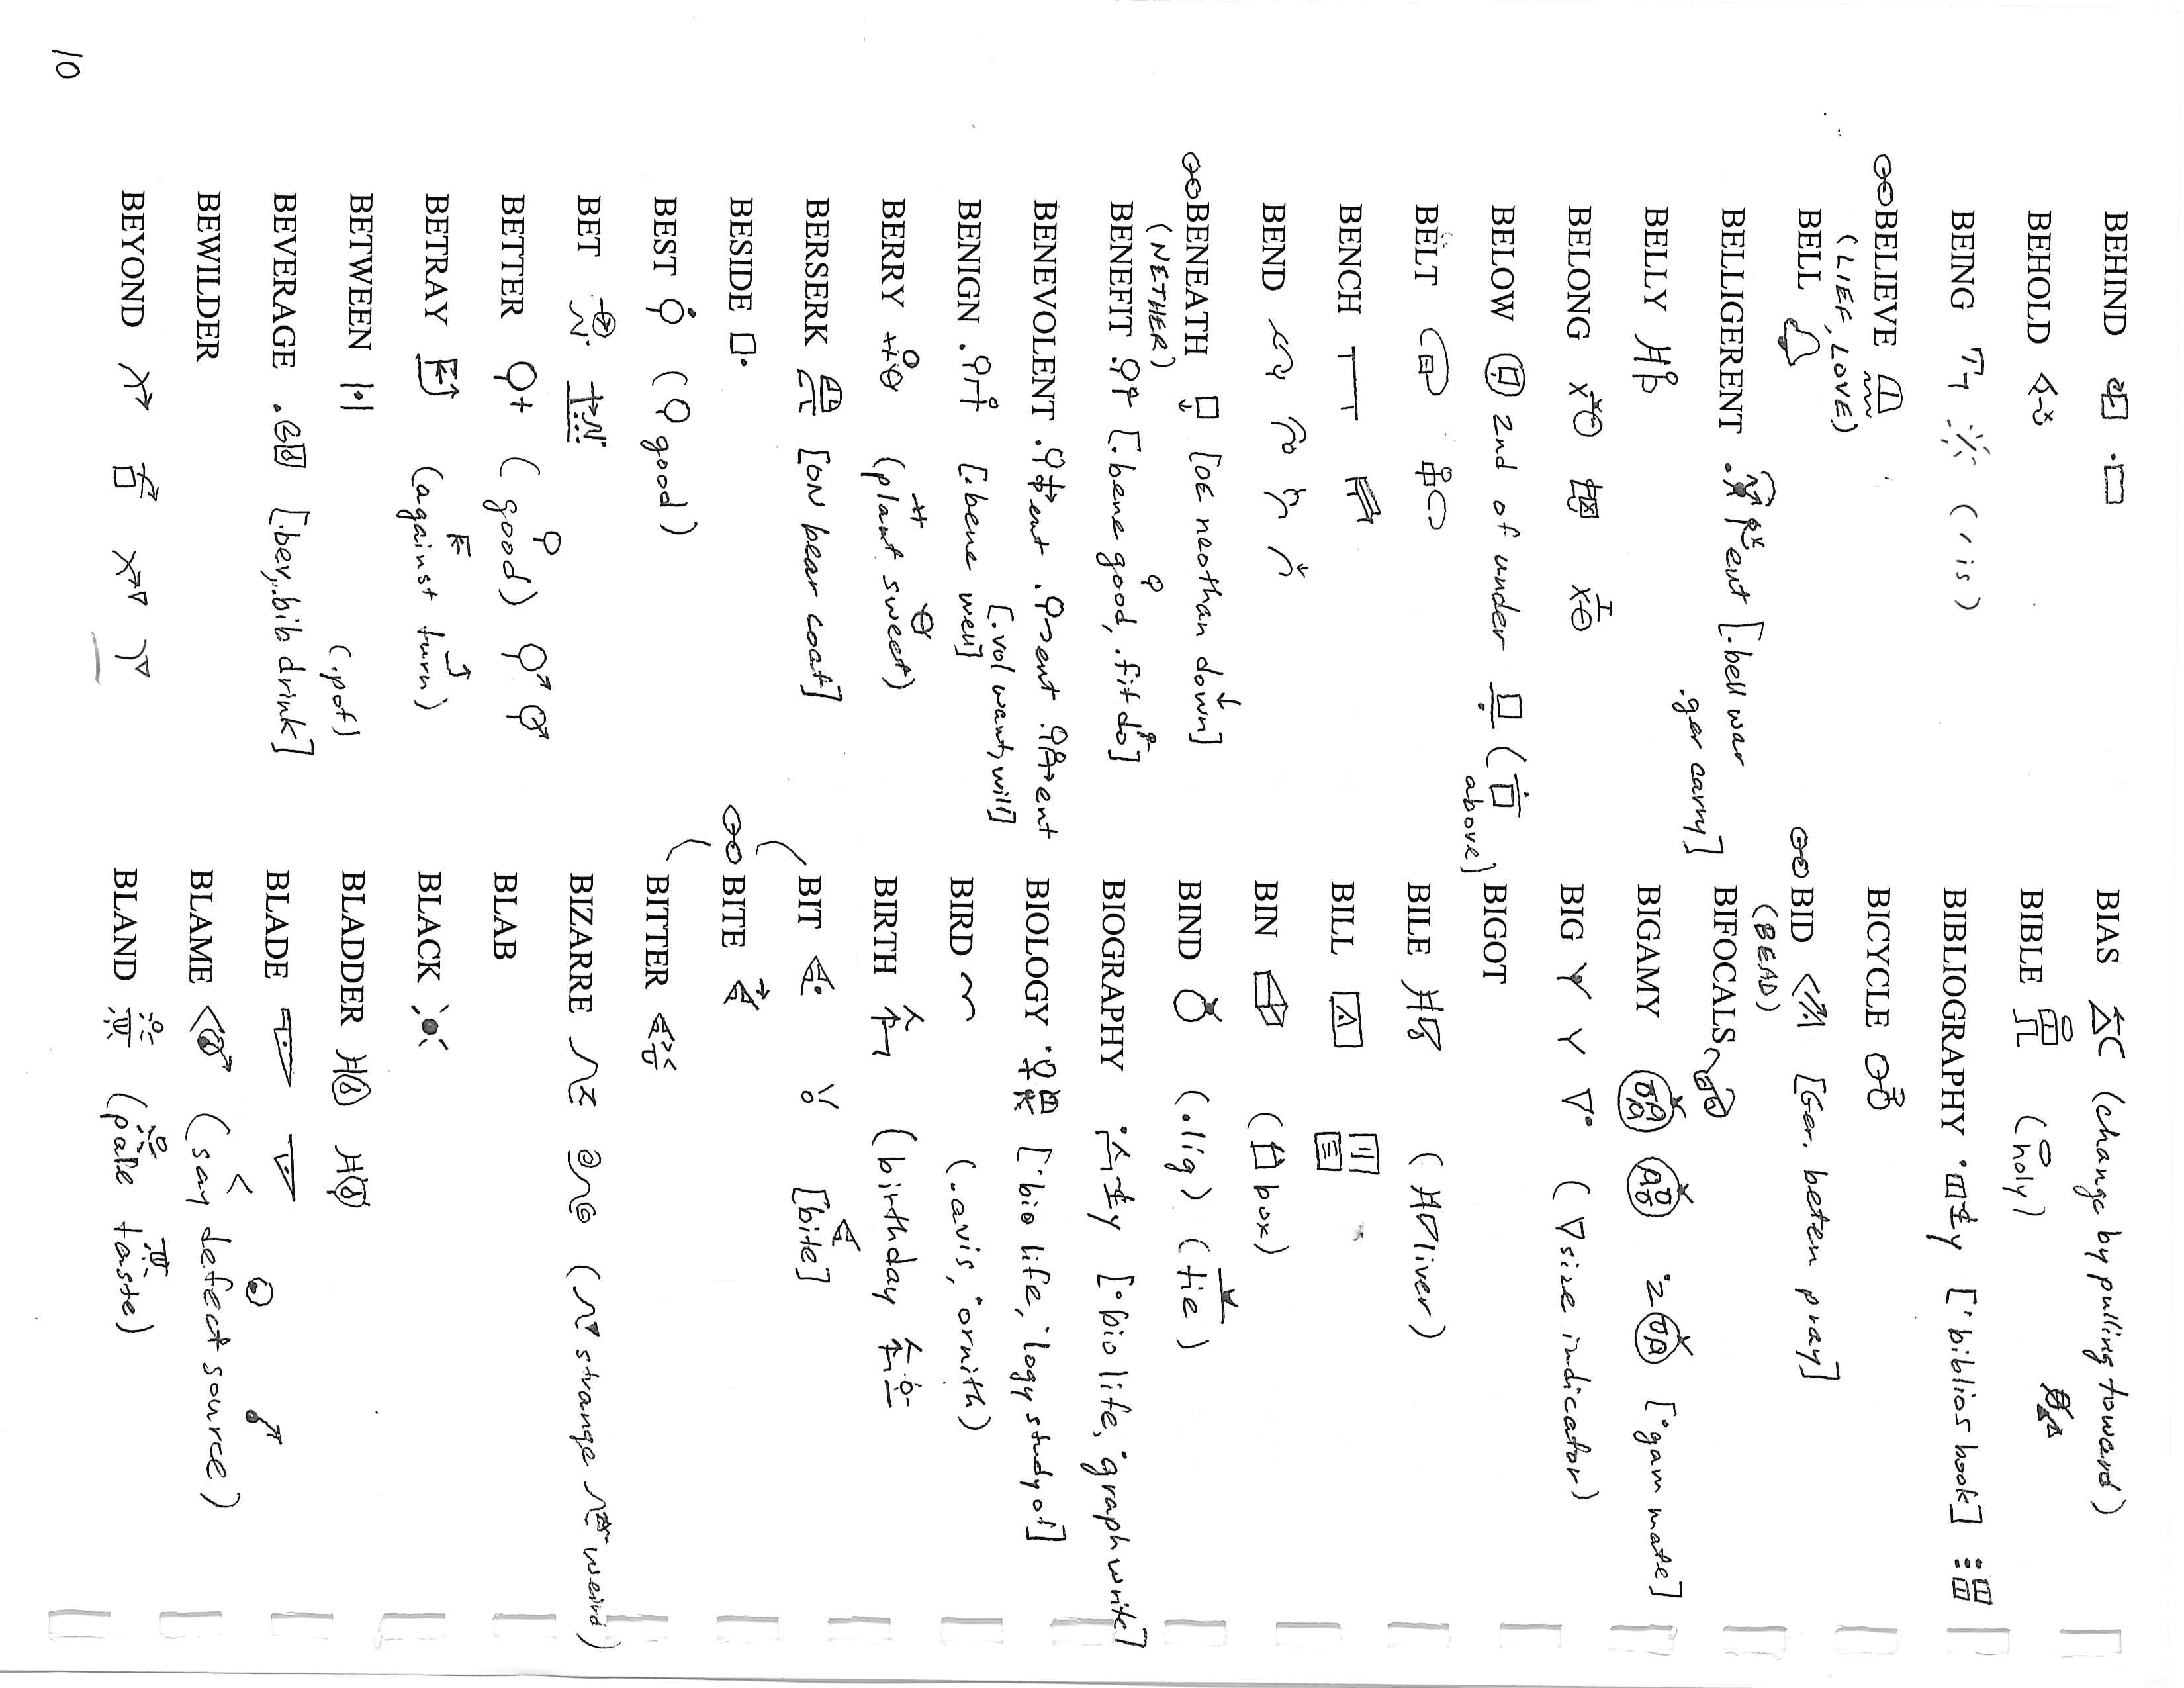 BEHIND
BEHOLD
BEING (is)
BELIEVE
(LIEF, LOVE)
BELL
BELLIGERENT .ent [.bell war
.ger carry]
BELLY
BELONG
BELOW 2nd of under (above)
BELT
BENCH
BEND
BENEATH [OE neothan down]
(NETHER)
BENEFIT [.bene good, .fit do]
BENEVOLENT .ent .ent .ent
[.vol want, will]
BENIGN [.bene well]
BERRY (plant sweet)
BERSERK [ON bear coat]
BESIDE
BEST (good)
BET
BETTER (good)
BETRAY (against turn)
BETWEEN
(.pot)
BEVERAGE [.bev, .bib drink]
BEWILDER
BEYOND
BIAS (change by pulling toward)
BIBLE (holy)
BIBLIOGRAPHY y [˙biblios book]
BICYCLE
BID [Ger. beten pray]
(BEAD)
BIFOCALS
BIGAMY ˙2 [˙gam mate]
BIG (size indicator)
BIGOT
BILE (liver)
BILL
BIN (box)
BIND (.lig) (tie)
BIOGRAPHY y [˙bio life, ˙graph write]
BIOLOGY [˙bio life, ˙logy study of]
BIRD (.avis, ˙ornith)
BIRTH (birthday)
BIT [bite]
BITE
BITTER
BIZARRE (strange weird)
BLAB
BLACK
BLADDER
BLADE
BLAME (say defect source)
BLAND (pale taste)
10